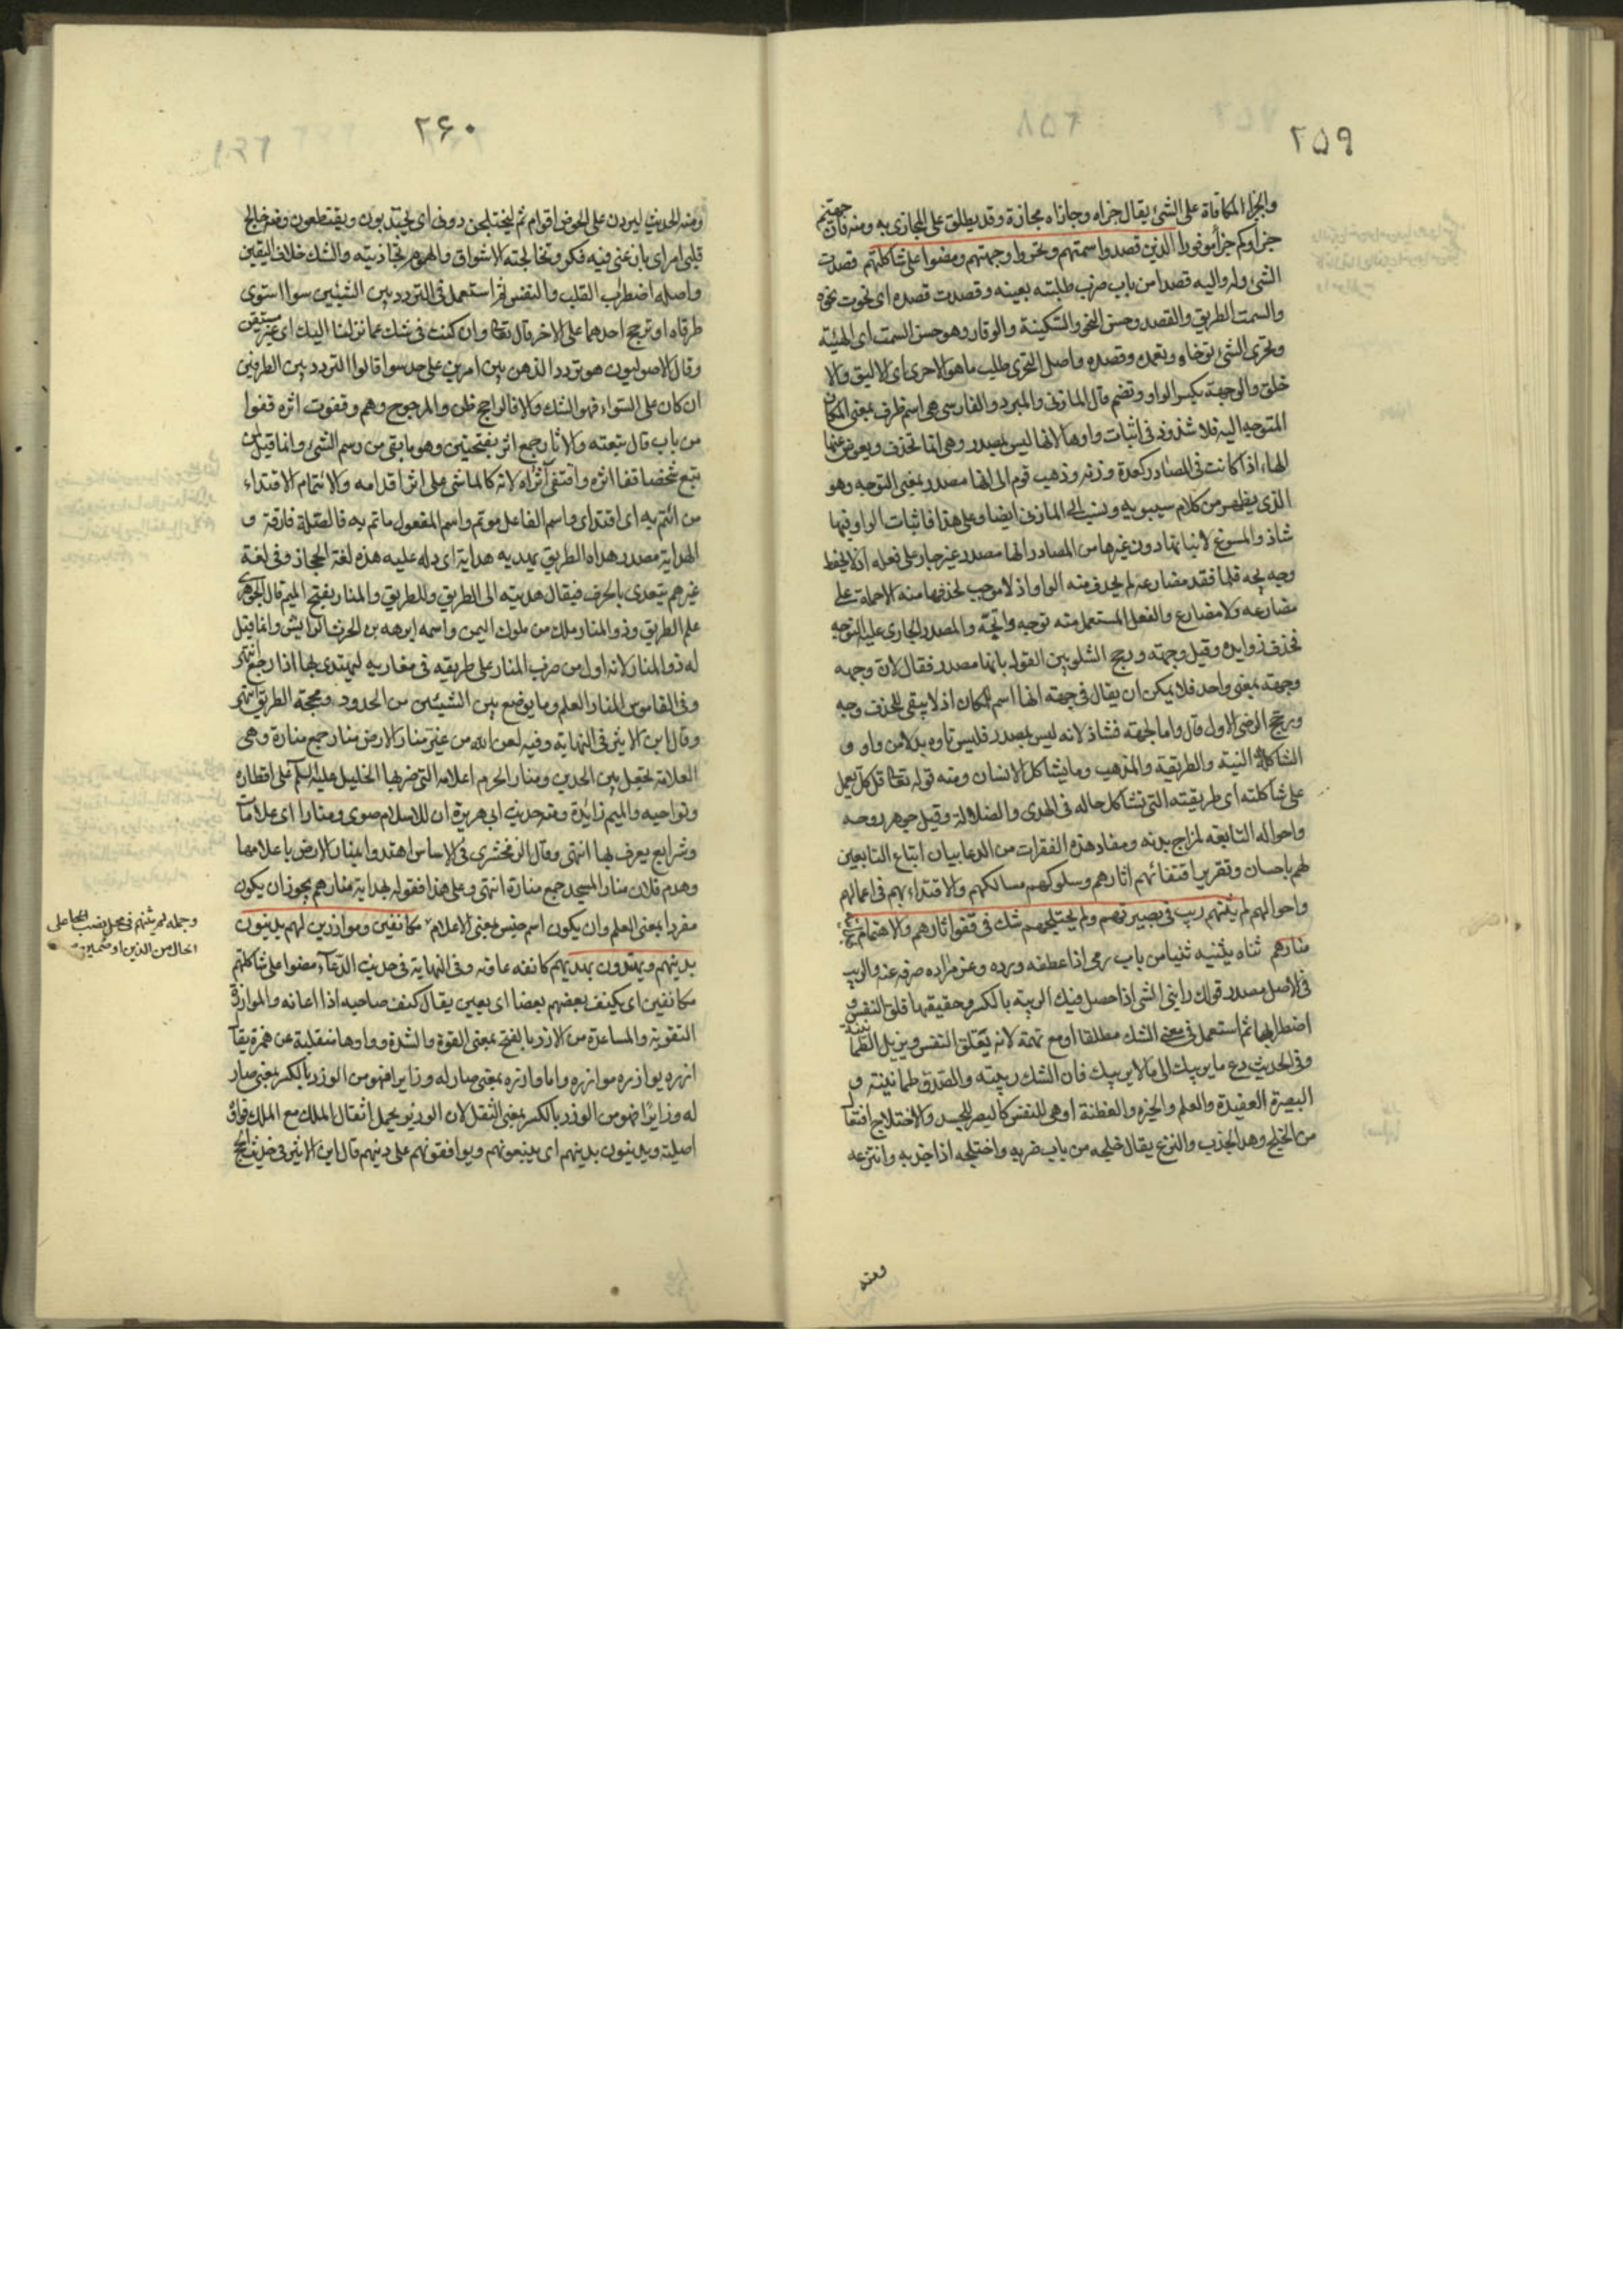 ٢٥٩
والجزاء المكافاة على الشئ يقال جزاه وجازاه مجازة وقد يطلق على المجازى به ومنه فان جهنم
جزاؤكم جزاء موفورا الذين قصدوا سمتهم وتحروا وجهتهم ومضوا على شاكلتهم قصدت
الشئ وله واليه قصدا من باب ضرب طلبته بعينه وقصدت قصده اى نحوت نحوه
والسمت الطريق والقصد وحسن النحو والسكينة والوقار وهو حسن السمت اى الهيئة
وتحرى الشئ توخاه وتعمده وقصده واصل التحرى طلب ما هو الاحرى اى الاليق والا
خلق والوجهة بكسر الواو وتضم قال المازنى والمبرد والفارسى هى اسم ظرف بمعنى المكان
المتوجه اليه فلا شذوذ فى اثبات واوها لانها ليس بمصدر وهى انما تحذف ويعوض عنها
الهاء اذا كانت فى المصادر كعدة وزنة وذهب قوم الى انها مصدر بمعنى التوجه وهو
الذى يظهر من كلام سيبويه ونسب الى المازنى ايضا وعلى هذا فاثبات الواو فيها
شاذ والمسوغ لاثباتها دون غيرها من المصادر انها مصدر غير جار على فعله اذ لا يحفظ
وجه يجه فلما فقد مضارعه لم يحذف منه الواو اذ لا موجب لحذفها منه الا حمله على
مضارعه ولا مضارع والفعل المستعمل منه توجه واتجه والمصدر الجارى عليه التوجه
فحذف زوايده وقيل وجهة ورجح الشلوبين القول بانها مصدر فقال لان وجهه
وجهة بمعنى واحد فلا يمكن ان يقال فى جهة انها اسم للمكان اذ لا يبقى للحذف وجه
ورجح الرضى الاول قال واما لجهة فشاذ لانه ليس بمصدر فليس تاوه بدلا من واو و
الشاكلة النية والطريقة والمذهب وما يشاكل الانسان ومنه قوله تعالى قل كل يعمل
على شاكلته اى طريقته التى تشاكل حاله فى الهدى والضلالة وقيل جوهر روحه
واحواله التابعة لمزاج بدنه ومفاد هذه الفقرات من الدعا بيان ابتاع التابعين
لهم باحسان وتقرير اقتفائهم اثارهم وسلوكهم مسالكهم والاقتداء بهم فى اعمالهم
واحوالهم لم يثنهم ريب فى بصيرتهم ولم يختلجهم شك فى قفوا ثارهم والايتمام
منارهم ثناه يثنيه ثنيا من باب رمى اذا عطفه ورده وعن مراده صرفه عنه والريب
فى الاصل مصدر قولك رابنى الشئ اذا حصل فيك الريبة بالكسر وحقيقتها قلق النفس و
اضطرابها ثم استعمل فى معنى الشك مطلقا او مع تهمة لانه يقلق النفس ويزيل الطمانينة
وفى الحديث دع ما يريبك الى ما لا يريبك فان الشك ريبة والصدق طمانينة و
البصيرة العقيدة والعلم والخبرة والفطنة او هى للنفس كالبصر للجسد والاختلاج افتعال
من الخلج وهو الجذب والنزع يقال خلجه من باب ضربه واختلجه اذا جذبه وانتزعه
ومنه
٢۶٠
ومنه الحديث ليردن على الحوض اقوام ثم ليختلجن دونى اى يجتذبون ويقتطعون وفيه خالج
قلبى امر اى بان عنى فيه فكر وتخالجته الاشواق والهموم تجاذبته والشك خلاف اليقين
واصله اضطراب القلب والنفس ثم استعمل فى التردد بين الشيئين سوا استوى
طرفاه او ترجح احدهما على الاخر قال تعالى وان كنت فى شك مما نزلنا اليك اى غير مستيقن
وقال الاصوليون هو تردد الذهن بين امرين على حد سوا قالوا التردد بين الطرفين
ان كان على السواء فهو الشك والا فالراجح ظن والمرجوح وهم وقفوت اثره قفوا
من باب قال تبعته والاثار جمع اثر بفتحتين وهو ما بقى من رسم الشئ وانما قيل لمن
تبع شخصا قفا اثره واقتفى اثراه لانه كالماشى على اثر اقدامه والائتمام الاقتداء
من ائتم به اى اقتداى واسم الفاعل موتم واسم المفعول ماتم به فالصلة فارقة و
الهداية مصدر هداه الطريق يهديه هداية اى دله عليه هذه لغة الحجاز وفى لغة
غيرهم يتعدى بالحرف فيقال هديته الى الطريق وللطريق والمنار بفتح الميم قال الجوهرى
علم الطريق وذو المنار ملك من ملوك اليمن واسمه ابرهه بن الحرث الرايش وانما قيل
له ذو المنار لانه اول من ضرب المنار على طريقه فى مغازيه ليهتدى بها اذا رجع انتهى
وفى القاموس المنار العلم وما يوضع بين الشيئين من الحدود ومحجة الطريق انتهى
وقال ابن الاثير فى النهاية وفيه لعن الله من غير منار الارض منار جمع منارة وهى
العلامة تجعل بين الحدين ومنار الحرم اعلامه التى ضربها الخليل عليه السلام على اقطاره
ونواحيه والميم زايدة ومنه حديث ابى هريرة ان للاسلام صوى ومنارا اى علامات
وشرايع يعرف بها انتهى وقال الزمخشرى فى الاساس اهتدوا بمنار الارض باعلامها
وهدم فلان منار المسجد جمع منارة انتهى وعلى هذا فقوله بهداية منارهم يجوز ان يكون
مفردا بمعنى العلم وان يكون اسم جنس بمعنى الاعلام مكانفين وموازرين لهم يدينون
بدينهم ويهتدون بهديهم كانفه عاونه وفى النهاية فى حديث الدعاء مضوا على شاكلتهم
مكانفين اى يكنف بعضهم بعضا اى يعين يقال كنف صاحبه اذا اعانه والموازرة
التقوية والمساعدة من الازر بالفتح بمعنى القوة والشدة وواوها منقلبة عن همزة يقال
ازره يوازره موازره واما وازره بمعنى صار له وزايرا فهو من الوزر بالكسر بمعنى صار
له وزايرًا فهو من الوزر بالكسر بمعنى الثقل لان الوزير يحمل اثقال الملك مع الملك فواوه
اصيلة ويدينون بدينهم اى يتبعونهم ويوافقونهم على دينهم قال ابن الاثير فى حديث الحج
وجمله لم يثنهم فى محل نصب على
الحال من الذين او ضمير